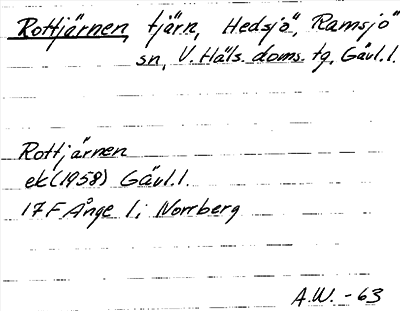 Rottjärnen, tjärn, Hedsjö, Ramsjö
sn, V. Häls. doms. tg, Gävl. l.
Rottjärnen
ek (1958) Gävl. l.
17F Ånge l; Norrberg
A.W. -63